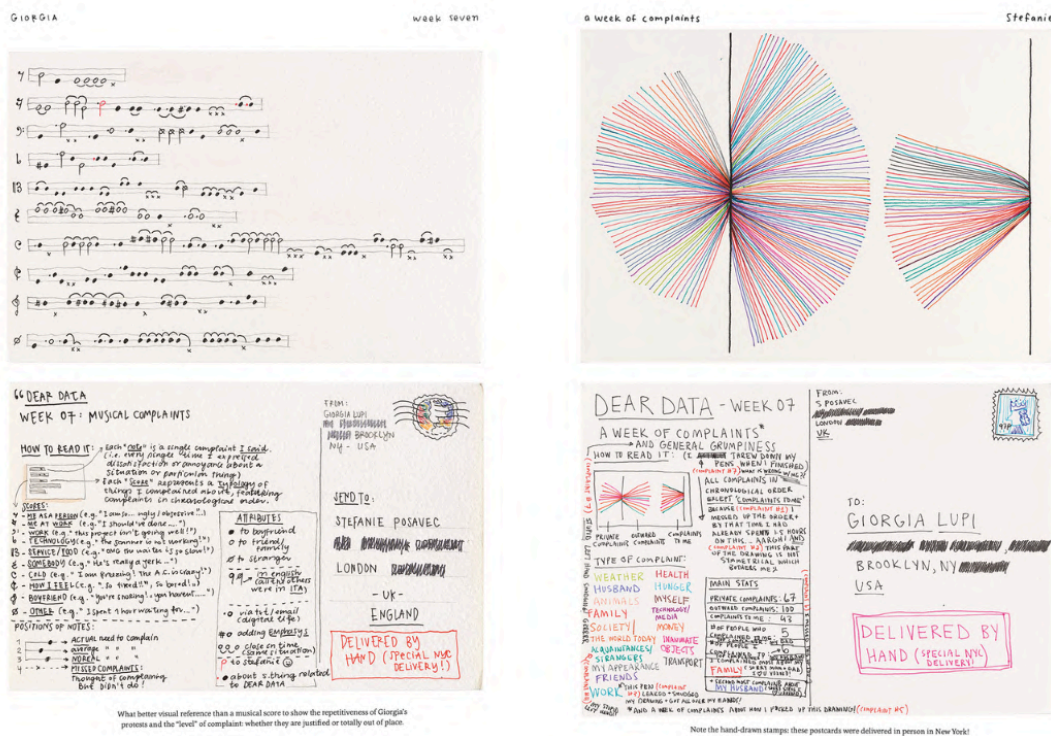 GIORGIA
week seven
a week of complaints
Stefanie
“ DEAR DATA
WEEK 07: MUSICAL COMPLAINTS
HOW TO READ IT:
Each "note" is a single complaint I said
(i.e. every single time I expressed
dissatisfaction or annoyance about a
situation or particular thing)
Each "score" represents a typology of
things I complained about,
complaints in chronological order.
SCORES:
ME AS A PERSON (e.g. "I am so... ugly/obsessive...")
ME AT WORK (e.g. "I should've done...")
WORK (e.g. "this project isn't going well!")
TECHNOLOGY (e.g. "the scanner is not working!")
SERVICE/FOOD (e.g. "OMG the waiter is so slow!")
SOMEBODY (e.g. "He's really a jerk...")
COLD (e.g. "I am freezing! The A.C. is crazy!")
HOW I FEEL (e.g. "so tired!!", so bored!)
BOYFRIEND (e.g. "You're snoring!, you haven't...")
OTHER (e.g. "I spent 1 hour waiting for...")
POSITIONS OF NOTES:
1 ACTUAL need to complain
2 average " " "
3 NORMAL " " "
MISSED COMPLAINTS:
Thought of complaining
but DIDN'T do!
ATTRIBUTES
to boyfriend
to friend
family
to stranger
in english
(all the others
were in ITA)
via txt/email
(digital life)
adding EMPHASYS
close in time
(same situation)
to stefanie
about s.thing related
to DEAR DATA
FROM:
GIORGIA LUPI
BROOKLYN
NY - USA
SEND TO:
STEFANIE POSAVEC
LONDON
- UK -
ENGLAND
DELIVERED BY
HAND (SPECIAL NYC
DELIVERY!)
What better visual reference than a musical score to show the repetitiveness of Giorgia's
protests and the "level" of complaint: whether they are justified or totally out of place.
DEAR DATA - WEEK 07
A WEEK OF COMPLAINTS*
AND GENERAL GRUMPINESS
HOW TO READ IT: (I THREW DOWN MY
PENS WHEN I FINISHED)
(COMPLAINT #7)
ALL COMPLAINTS IN
CHRONOLOGICAL ORDER
EXCEPT 'COMPLAINTS TO ME'
BECAUSE (COMPLAINT #1) I
MESSED UP THE ORDER +
BY THAT TIME I HAD
ALREADY SPENT 1.5 HOURS
ON THIS... AARGH! AND
(COMPLAINT #2) THIS PART
OF THE DRAWING IS NOT
SYMMETRICAL WHICH
BOTHERS ME
PRIVATE COMPLAINTS
OUTWARD COMPLAINTS
COMPLAINTS TO ME
TYPE OF COMPLAINT:
WEATHER
HUSBAND
ANIMALS
FAMILY
SOCIETY/
THE WORLD TODAY
ACQUAINTANCES/
STRANGERS
MY APPEARANCE
FRIENDS
WORK
HEALTH
HUNGER
MYSELF
TECHNOLOGY/
MEDIA
MONEY
INANIMATE
OBJECTS
TRANSPORT
MAIN STATS
PRIVATE COMPLAINTS: 67
OUTWARD COMPLAINTS: 100
COMPLAINTS TO ME: 43
# OF PEOPLE WHO
COMPLAINED TO ME: 5
FAMILY
MY HUSBAND
*THIS PEN (COMPLAINT
LEAKED + SMUDGED
MY DRAWING + GOT ALL OVER MY HANDS!
*AND A WEEK OF COMPLAINTS ABOUT HOW I F*CKED UP THIS DRAWING! (COMPLAINT #5)
FROM:
S. POSAVEC
LONDON
UK
TO:
GIORGIA LUPI
BROOKLYN, NY
USA
DELIVERED BY
HAND (SPECIAL NYC
DELIVERY!)
Note the hand-drawn stamps: these postcards were delivered in person in New York!